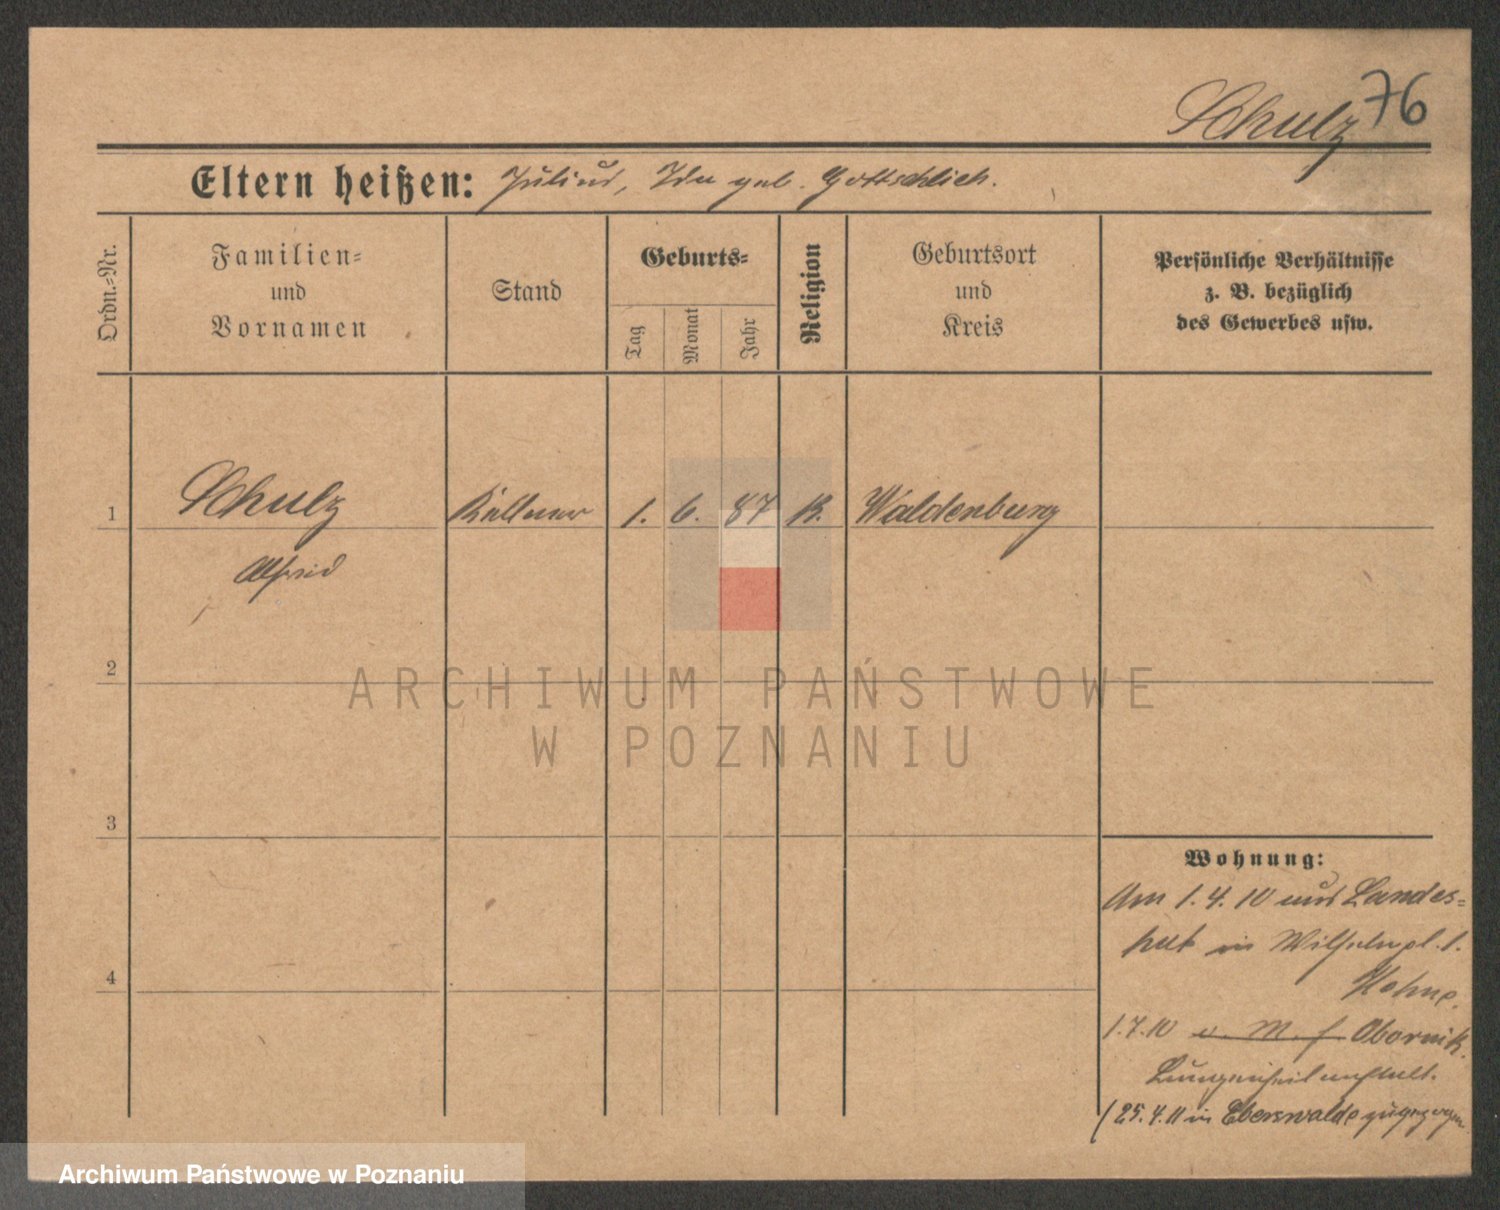 Schulz 76
Eltern heißen: Julius, Ida geb. Gottschlich.
Ordn.-Nr.
Familien-
und
Vornamen
Stand
Geburts-
Tag
Monat
Jahr
Religion
Geburtsort
und
Kreis
Persönliche Verhältnisse
z. B. bezüglich
des Gewerbes usw.
1 Schulz Kellner 1. 6. 87 K. Waldenburg
Alfried
2
3
4
Wohnung:
Am 1.4.10 aus Landes-
hut in Wilhelmpl. 1.
1.7.10 v. M. f Obornik
Lungenheilanstalt.
(25.4.11 in Eberswalde zugezogen.
ARCHIWUM PAŃSTWOWE
W POZNANIU
Archiwum Państwowe w Poznaniu